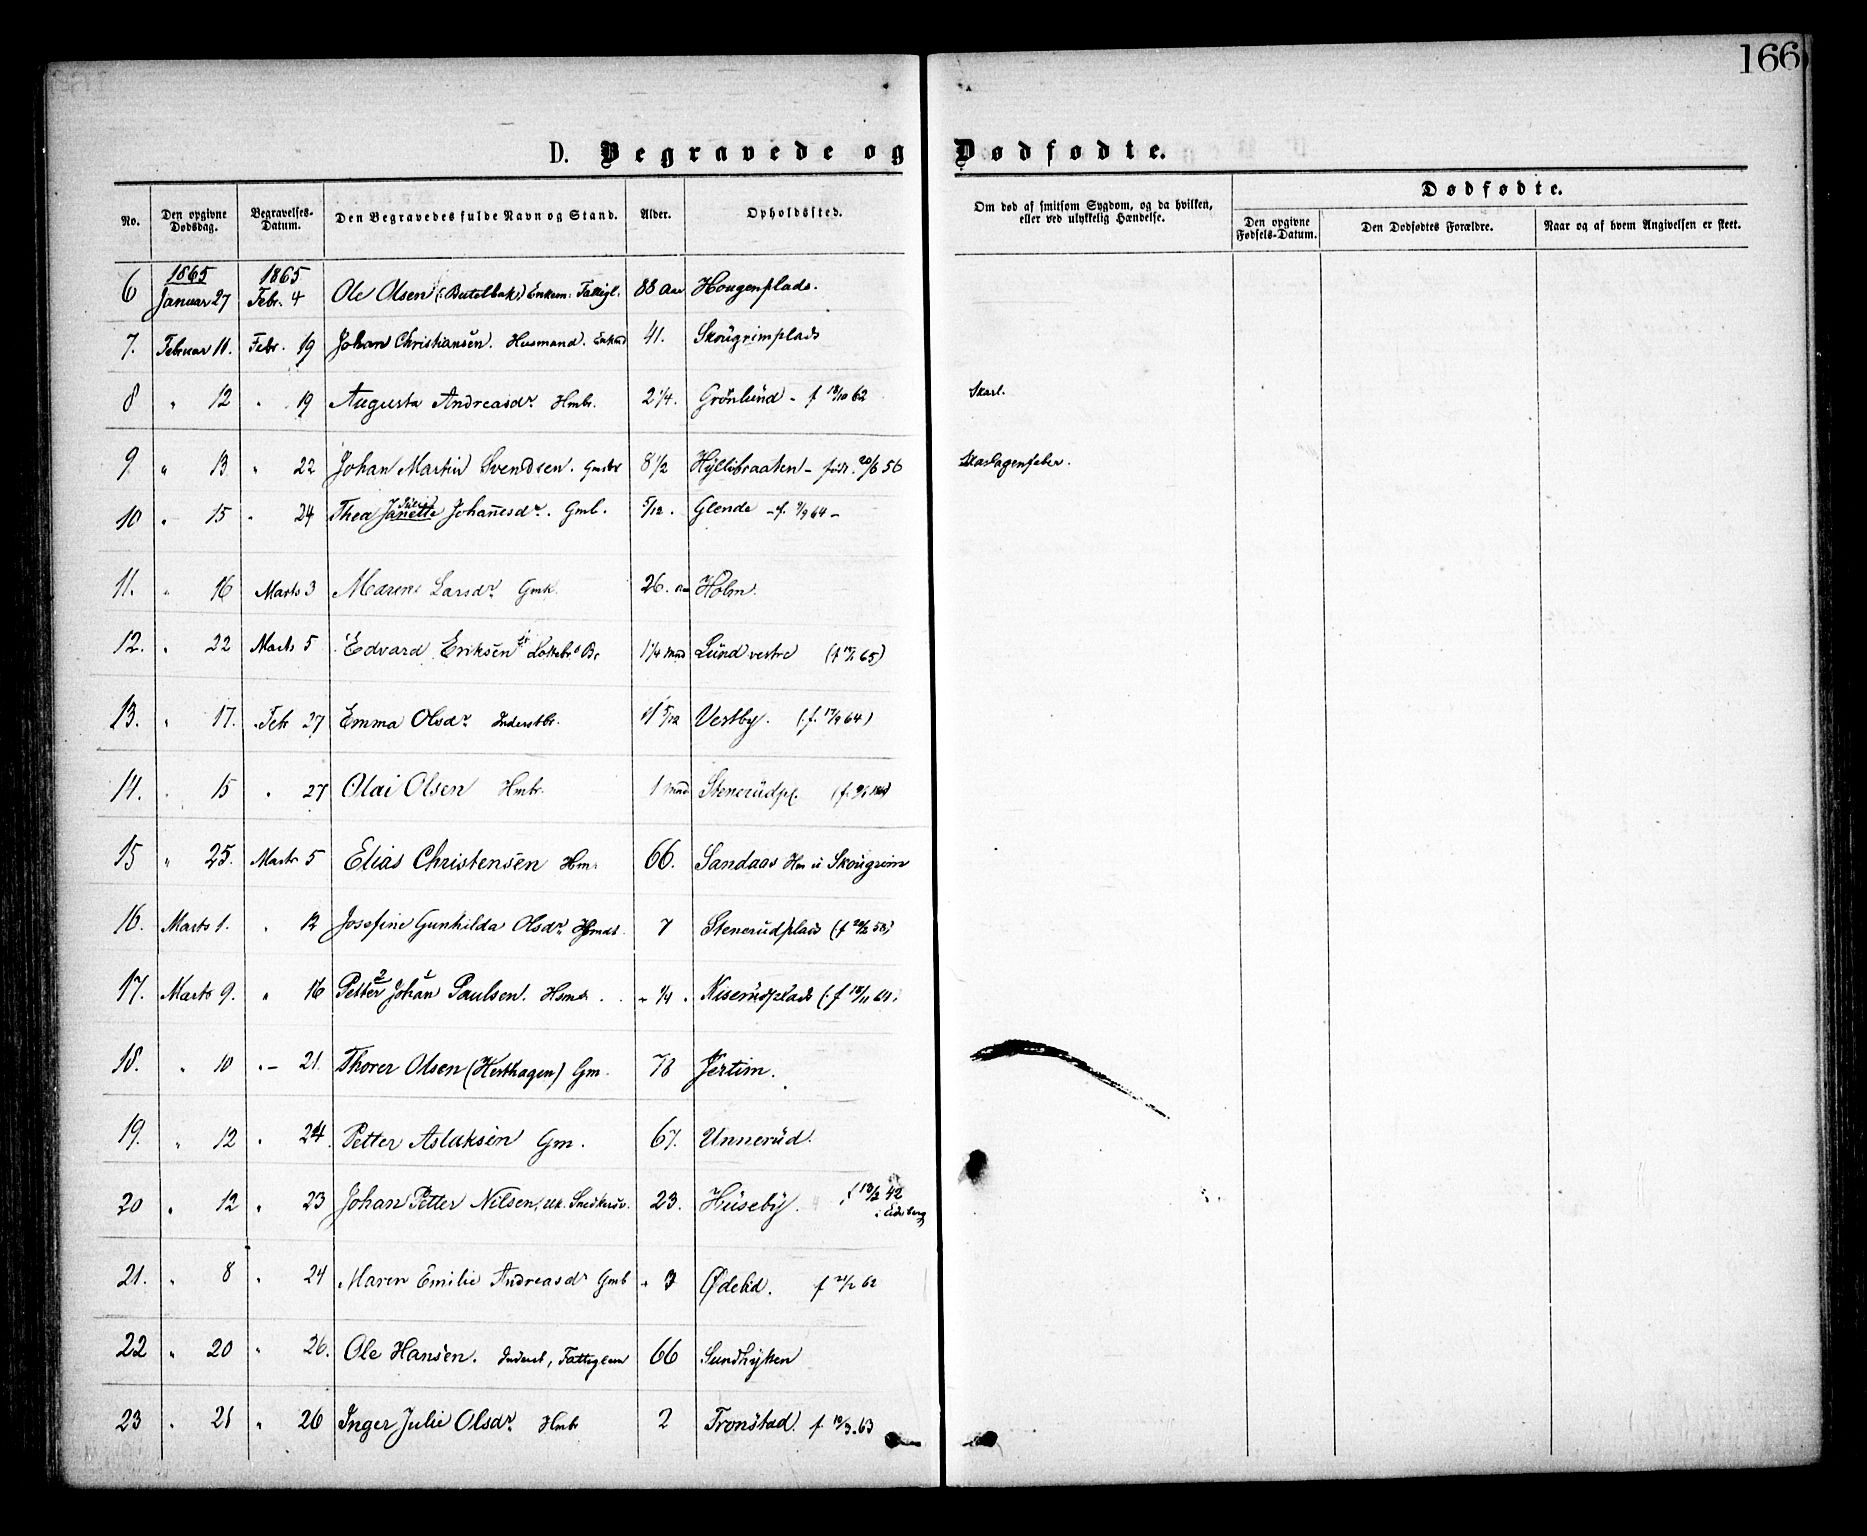 166
D. Begravede og Dødfødte.
No. Den opgivne Dødsdag. Begravelses-Datum. Den Begravedes fulde Navn og Stand. Alder. Opholdssted. Om død af smitsom Sygdom, og da hvilken, eller ved ulykkelig Hændelse. Dødfødte.
Den opgivne Fødsels-Datum. Den Dødfødtes Forældre. Naar og af hvem Angivelsen er skeet.
1865 1865
6 Januar 27 Febr. 4 Ole Olsen (: Beutelbak) Enkem: Fattigl. 88 Aar Hougenplads.
7. Februar 11. Febr. 19 Johan Christiansen. Husmand. 41. Skougrimplads
8 " 12 " 19 Augusta Andreasdr. Hmbr. 2 1/4. Grönlund - f 18/10 62 Skarl.
9 " 13 " 22 Johan Martin Svendsen. Gmbr 8 1/2 Hyllibraaten - født. 20/6 56 Skarlagensfeber.
10 " 15 " 24 Thea Janette Johanesdr. Gmb. 5/12. Glende - f. 9/9 64 -
11. " 16 Marts 3 Maren Larsdr. Gmk. 26. Holm.
12. " 22 Marts 5 Edvard Eriksen 1 1/4 Mnd Lund vestre (f 65)
13. " 17. Feb 27 Emma Olsdr. Inderstbr. 5/12 Vestby. (f. 17/9 64)
14. " 15 " 27 Olai Olsen Hmbr. 1 Mnd Stenerudpl.
15 " 25. Marts 5 Elias Christensen Hm. 66. Sandaas Hm u Skougrim
16. Marts 1. " 12 Josefine Gunhilda Olsdr. 7 Stenerudplads (f 58)
17. Marts 9. " 16 Petter 2 Johan 1 Paulsen. Hsmdr. " 1/4. Kiserudplads (: f 18/11 64.
18. " 10 " - 21. Thorer Olsen (Hesthagen) Gm. 78 Jertim.
19. " 12 " 24. Petter Aslaksen Gm. 67. Unnerud.
20 " 12 " 23 Johan Petter Nilsen, uk. Snedkersv. 23. Huseby. f 13/2 42 i Eidsberg
21. " 8 " 24 Maren Emilie Andreasdr Gmb " 3 Ødelid. f 21/2 62
22 " 20 " 26. Ole Hansen. Inderst, Fattiglem 66 Sundhyken
23 " 21 " 26 Inger Julie Olsdr. Hmbr 2 Tronstad. f 19/3. 63